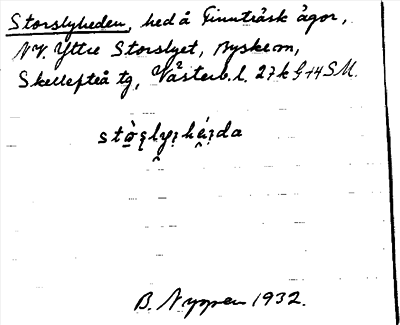 Storslyheden, hed å Finnträsk ägor,
NV. Yttre Storslyet, Byske sn,
Skellefteå tg, Västerb. l. 27 k G+4 SM.
stò̱ʂly̯꞉hé̱ꞌda
B. Nygren 1932.